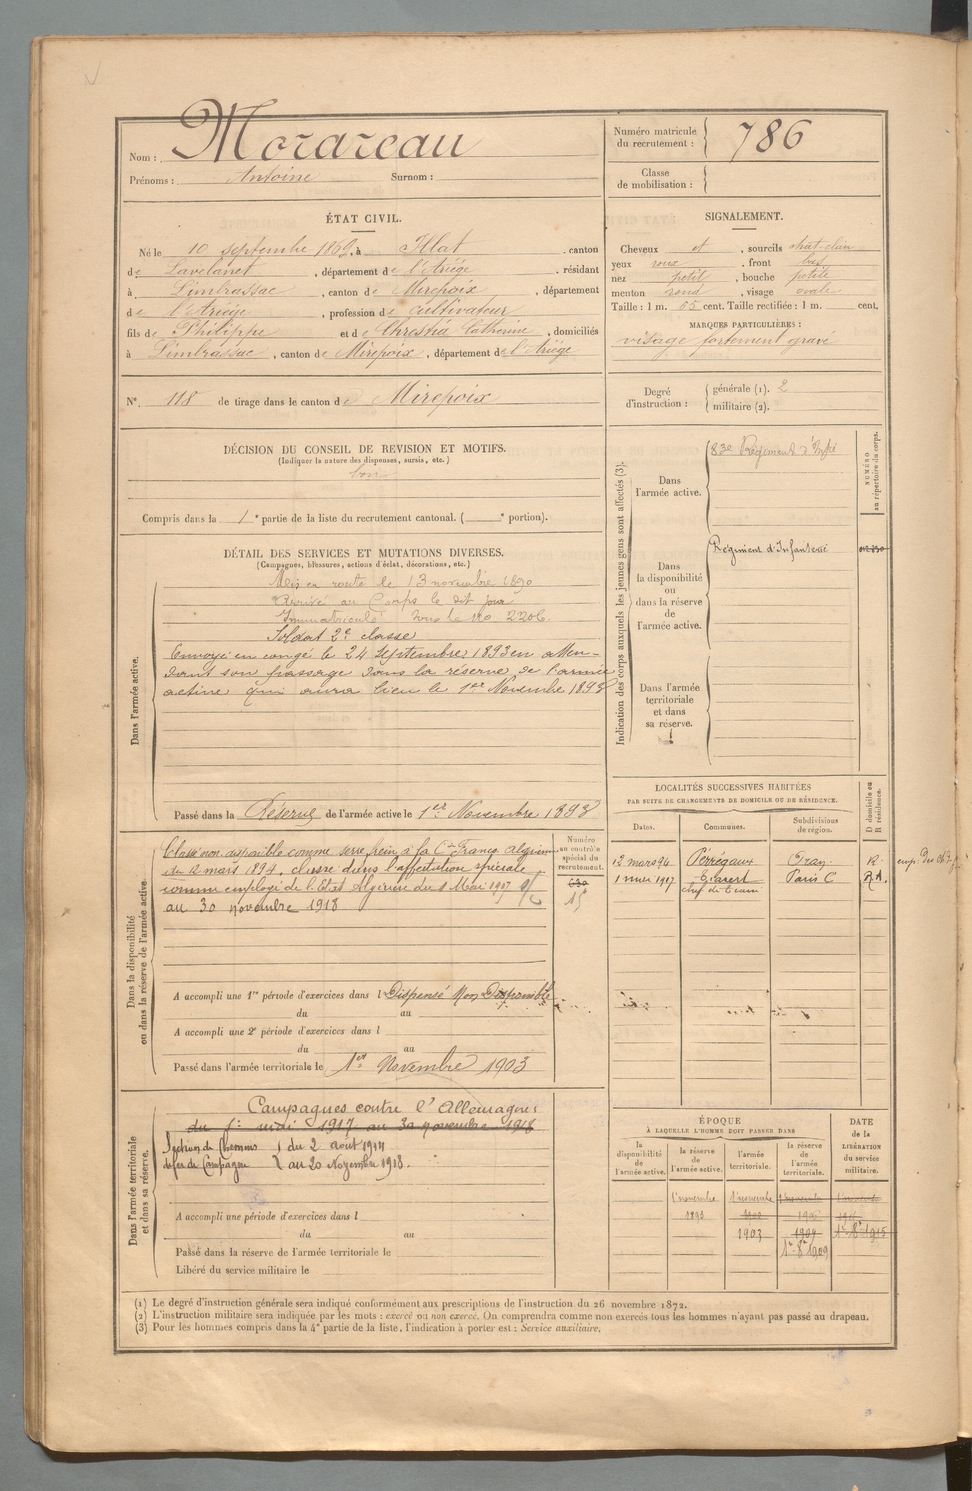 Nom : Morareau
Prénoms : Antoine Surnom :
Numéro matricule du recrutement : 786
Classe de mobilisation :
ÉTAT CIVIL.
Né le 10 septembre 1869, à Illat . canton
de Lavelanet , département de l'Ariége . résidant
à Limbrassac , canton de Mirepoix , département
de l'Ariége , profession de cultivateur
fils de Philippe et de Chrestia Catherine , domiciliés
à Limbrassac , canton de Mirepoix , département de l'Ariége
N° 118 de tirage dans le canton de Mirepoix
SIGNALEMENT.
Cheveux et , sourcils chat-clair
yeux roux , front bas
nez petit , bouche petite
menton rond , visage ovale
Taille : 1 m. 65 cent. Taille rectifiée : 1 m. cent.
MARQUES PARTICULIÈRES :
visage fortement gravé
Degré d'instruction : générale (1). 2
militaire (2).
DÉCISION DU CONSEIL DE REVISION ET MOTIFS.
(Indiquer la nature des dispenses, sursis, etc.)
bon
Compris dans la 1e partie de la liste du recrutement cantonal. ( e portion).
DÉTAIL DES SERVICES ET MUTATIONS DIVERSES.
(Campagnes, blessures, actions d'éclat, décorations, etc.)
Dans l'armée active.
Mis en route le 13 novembre 1890
Arrivé au Corps le dit jour
Immatriculé sous le no 2206.
Soldat 2e classe
Envoyé en congé le 24 Septembre 1893 en atten-
dant son passage dans la réserve de l'armée
active qui aura lieu le 1er Novembre 1893
Passé dans la Réserve de l'armée active le 1er Novembre 1893
Indication des corps auxquels les jeunes gens sont affectés (3).
NUMÉRO au répertoire du corps.
Dans l'armée active.
83e Régiment d'Infie
Dans la disponibilité ou dans la réserve de l'armée active.
Régiment d'Infanterie
Dans l'armée territoriale et dans sa réserve.
LOCALITÉS SUCCESSIVES HABITÉES
PAR SUITE DE CHANGEMENTS DE DOMICILE OU DE RÉSIDENCE.
Dates. Communes. Subdivisions de région. D domicile ou R résidence.
12 mars 94 Pérrégaux Oran R
1 mai 1917 Paris C
Dans la disponibilité ou dans la réserve de l'armée active
Numéro au contrôle spécial du recrutement.
Classé non disponible comme serre frein à la Cie Franco algérienne
du 12 mars 1894. classé dans l'affectation spéciale
comme employé de l'Etat Algérien du 1 Mai 1917
au 30 novembre 1918
15
A accompli une 1re période d'exercices dans l Dispensé Non Disponible
du au
A accompli une 2e période d'exercices dans l
du au
Passé dans l'armée territoriale le 1er Novembre 1903
Dans l'armée territoriale et dans sa réserve.
Campagnes contre l'Allemagne:
du 1er mai 1917 au 30 novembre 1918
Section de Chemins du 2 août 1914
de fer de Campagne au 20 Novembre 1918.
A accompli une période d'exercices dans l
du au
Passé dans la réserve de l'armée territoriale le
Libéré du service militaire le
ÉPOQUE
À LAQUELLE L'HOMME DOIT PASSER DANS
la disponibilité de l'armée active. la réserve de l'armée active. l'armée territoriale. la réserve de l'armée territoriale.
DATE de la LIBÉRATION du service militaire.
1 novembre 1 novembre 1 novembre
1893
1903 1909 1er 8bre 1915
1er 8bre 1909
(1) Le degré d'instruction générale sera indiqué conformément aux prescriptions de l'instruction du 26 novembre 1872.
(2) L'instruction militaire sera indiquée par les mots : exercé ou non exercé. On comprendra comme non exercés tous les hommes n'ayant pas passé au drapeau.
(3) Pour les hommes compris dans la 4e partie de la liste, l'indication à porter est : Service auxiliaire.